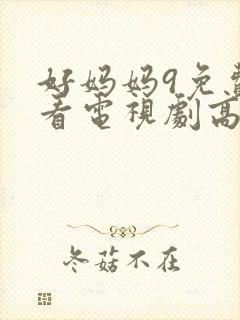 好妈妈9免費
看電視劇高
冬菇不在